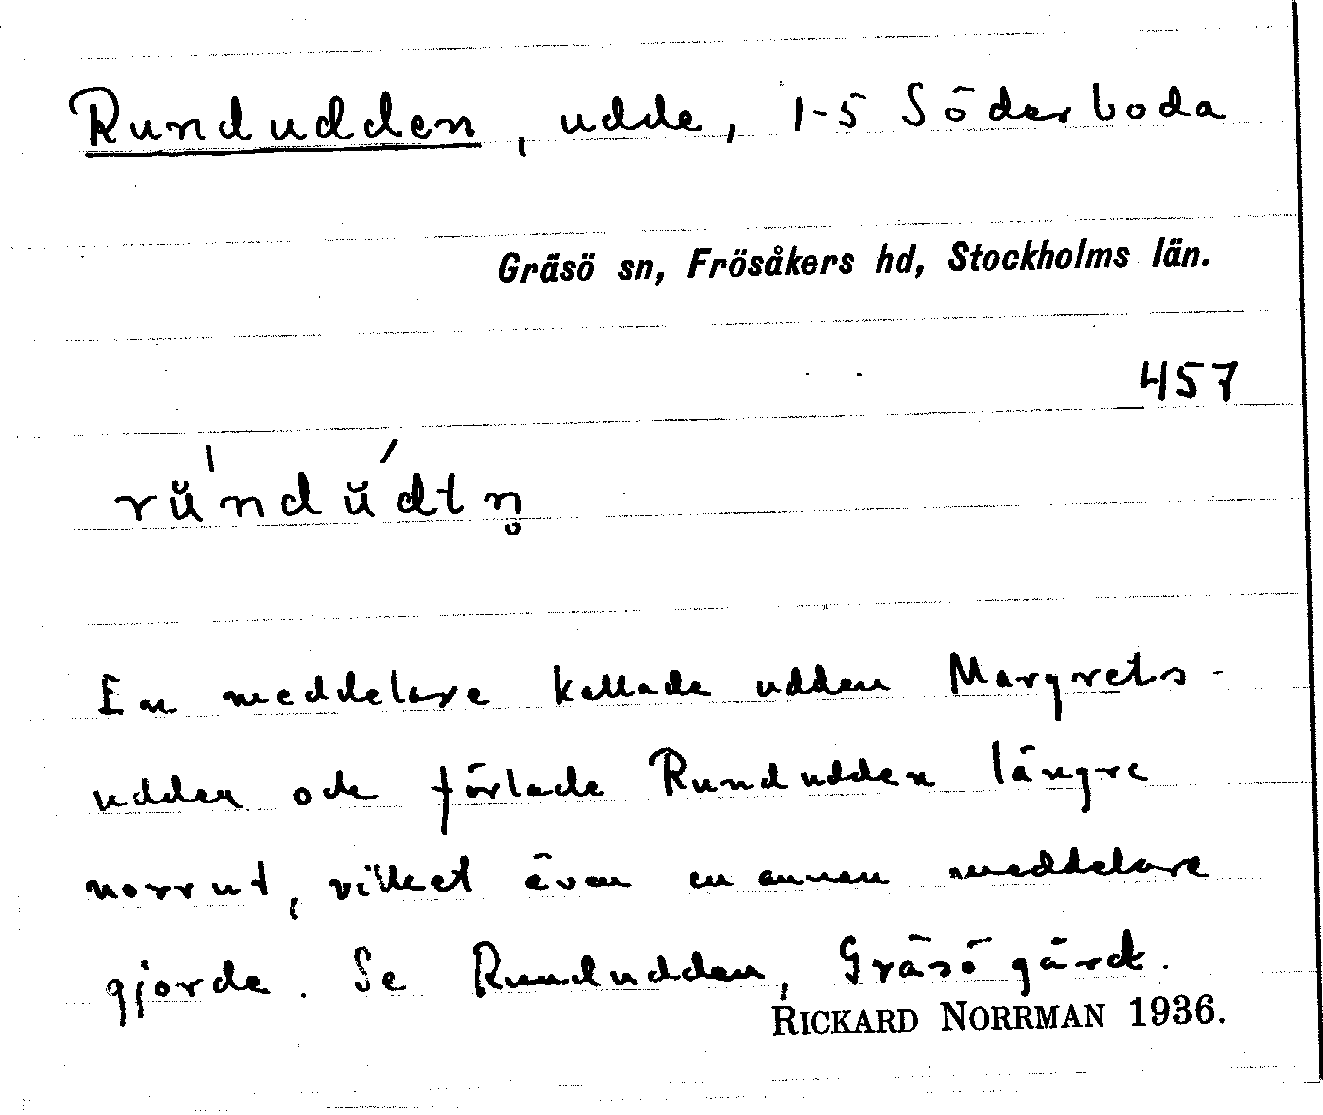 Rundudden, udde, 1-5 Söderboda
Gräsö sn, Frösåkers hd, Stockholms län.
457
rŭ́ndŭ́dtn̥
En meddelare kallade udden Margrets-
udden och förlade Rundudden längre
norrut, vilket även en annan meddelare
gjorde. Se Rundudden, Gräsö gärd.
RICKARD NORRMAN 1936.